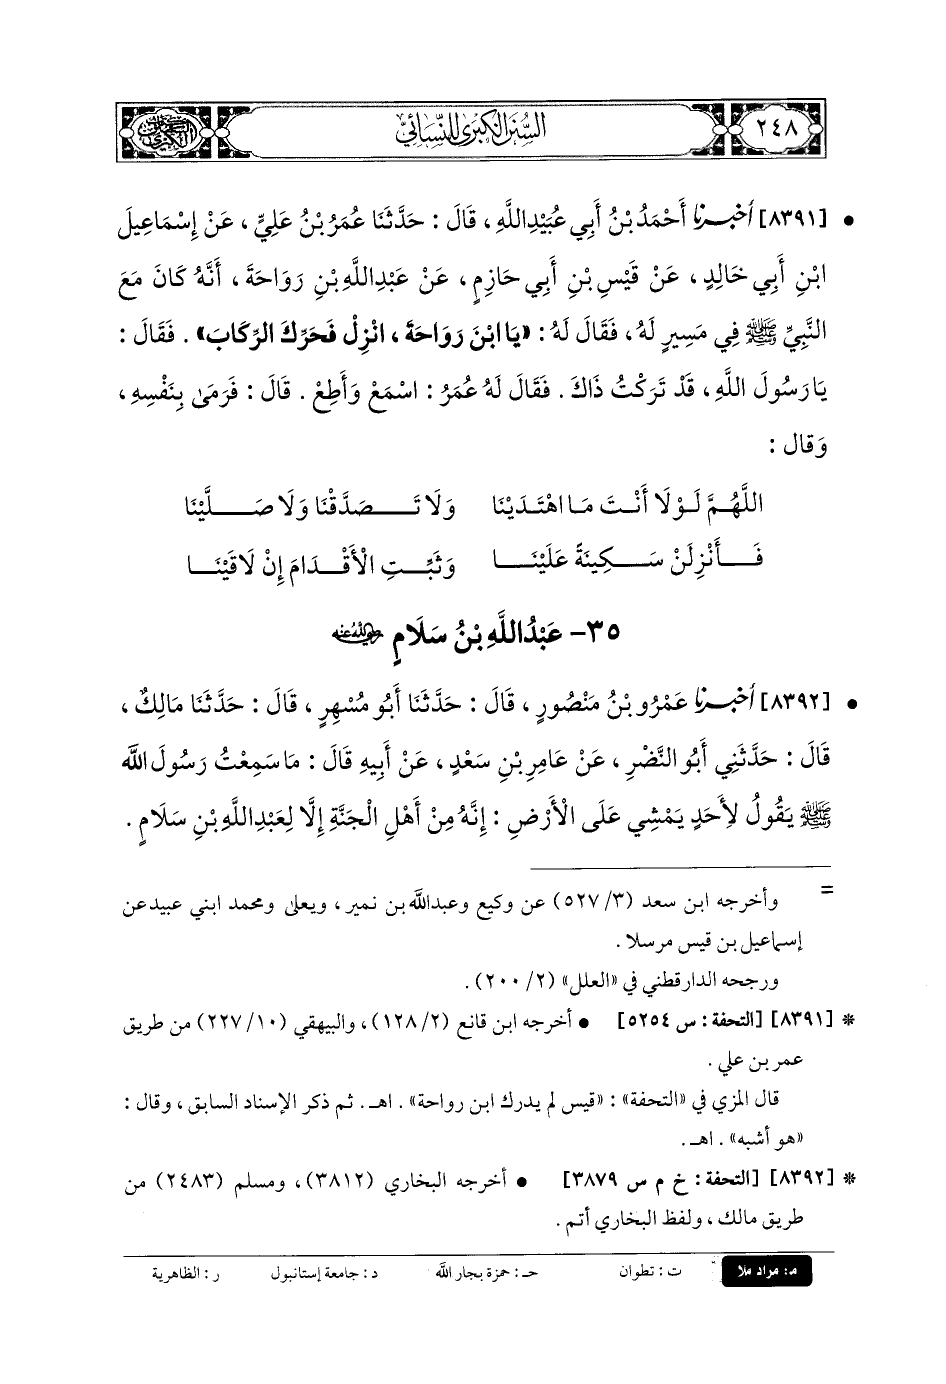 ٢٤٨
السنن الكبرى للنسائي
• [٨٣٩١] أَخْبَرَنَا أَحْمَدُ بْنُ أَبِي عُبَيْدِاللَّهِ، قَالَ: حَدَّثَنَا عُمَرُ بْنُ عَلِيٍّ، عَنْ إِسْمَاعِيلَ
ابْنِ أَبِي خَالِدٍ، عَنْ قَيْسِ بْنِ أَبِي حَازِمٍ، عَنْ عَبْدِاللَّهِ بْنِ رَوَاحَةَ، أَنَّهُ كَانَ مَعَ
النَّبِيِّ ﷺ فِي مَسِيرٍ لَهُ، فَقَالَ لَهُ: «يَا ابْنَ رَوَاحَةَ، انْزِلْ فَحَرِّكِ الرِّكَابَ». فَقَالَ:
يَا رَسُولَ اللَّهِ، قَدْ تَرَكْتُ ذَاكَ. فَقَالَ لَهُ عُمَرُ: اسْمَعْ وَأَطِعْ. قَالَ: فَرَمَى بِنَفْسِهِ،
وَقَالَ:
اللَّهُمَّ لَوْلَا أَنْتَ مَا اهْتَدَيْنَا وَلَا تَصَدَّقْنَا وَلَا صَلَّيْنَا
فَأَنْزِلَنْ سَكِينَةً عَلَيْنَا وَثَبِّتِ الْأَقْدَامَ إِنْ لَاقَيْنَا
٣٥- عَبْدُاللَّهِ بْنُ سَلَامٍ رضي الله عنه
• [٨٣٩٢] أَخْبَرَنَا عَمْرُو بْنُ مَنْصُورٍ، قَالَ: حَدَّثَنَا أَبُو مُسْهِرٍ، قَالَ: حَدَّثَنَا مَالِكٌ،
قَالَ: حَدَّثَنِي أَبُو النَّضْرِ، عَنْ عَامِرِ بْنِ سَعْدٍ، عَنْ أَبِيهِ قَالَ: مَا سَمِعْتُ رَسُولَ اللَّهِ
ﷺ يَقُولُ لِأَحَدٍ يَمْشِي عَلَى الْأَرْضِ: إِنَّهُ مِنْ أَهْلِ الْجَنَّةِ إِلَّا لِعَبْدِاللَّهِ بْنِ سَلَامٍ.
= وأخرجه ابن سعد (٣/ ٥٢٧) عن وكيع وعبدالله بن نمير، ويعلى ومحمد ابني عبيد عن
إسماعيل بن قيس مرسلا.
ورجحه الدارقطني في «العلل» (٢/ ٢٠٠).
* [٨٣٩١] [التحفة: س ٥٢٥٤] • أخرجه ابن قانع (٢/ ١٢٨)، والبيهقي (١٠/ ٢٢٧) من طريق
عمر بن علي.
قال المزي في «التحفة»: «قيس لم يدرك ابن رواحة». اهـ. ثم ذكر الإسناد السابق، وقال:
«هو أشبه». اهـ.
* [٨٣٩٢] [التحفة: خ م س ٣٨٧٩] • أخرجه البخاري (٣٨١٢)، ومسلم (٢٤٨٣) من
طريق مالك، ولفظ البخاري أتم.
م: مراد ملا ت: تطوان حـ: حمزة بجار الله د: جامعة إستانبول ر: الظاهرية